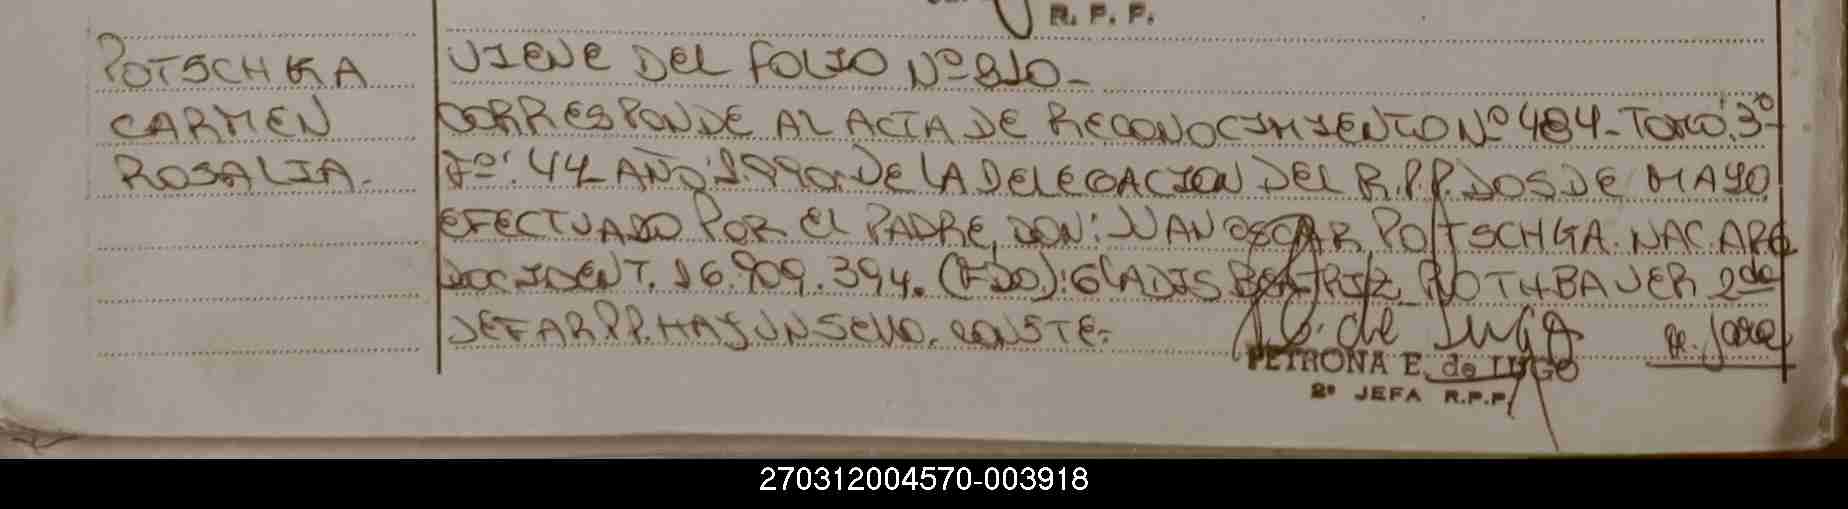 R. P. P.
POTSCHKA
CARMEN
ROSALIA.
VIENE DEL FOLIO Nº 810-
CORRESPONDE AL ACTA DE RECONOCIMIENTO Nº 484- TOMO: 3º
Fº: 44 AÑO: 1.990. DE LA DELEGACION DEL R.P.P. DOS DE MAYO
EFECTUADO POR EL PADRE, DON: JUAN OSCAR POTSCHKA. NAC. ARG
DOC. IDENT. 16.909.394. (FDO.): GLADIS BEATRIZ ROTHBAUER 2da
JEFA R.P.P. HAY UN SELLO. CONSTE.
de Lugo
PETRONA E. de LUGO
2º JEFA R.P.P.
270312004570-003918